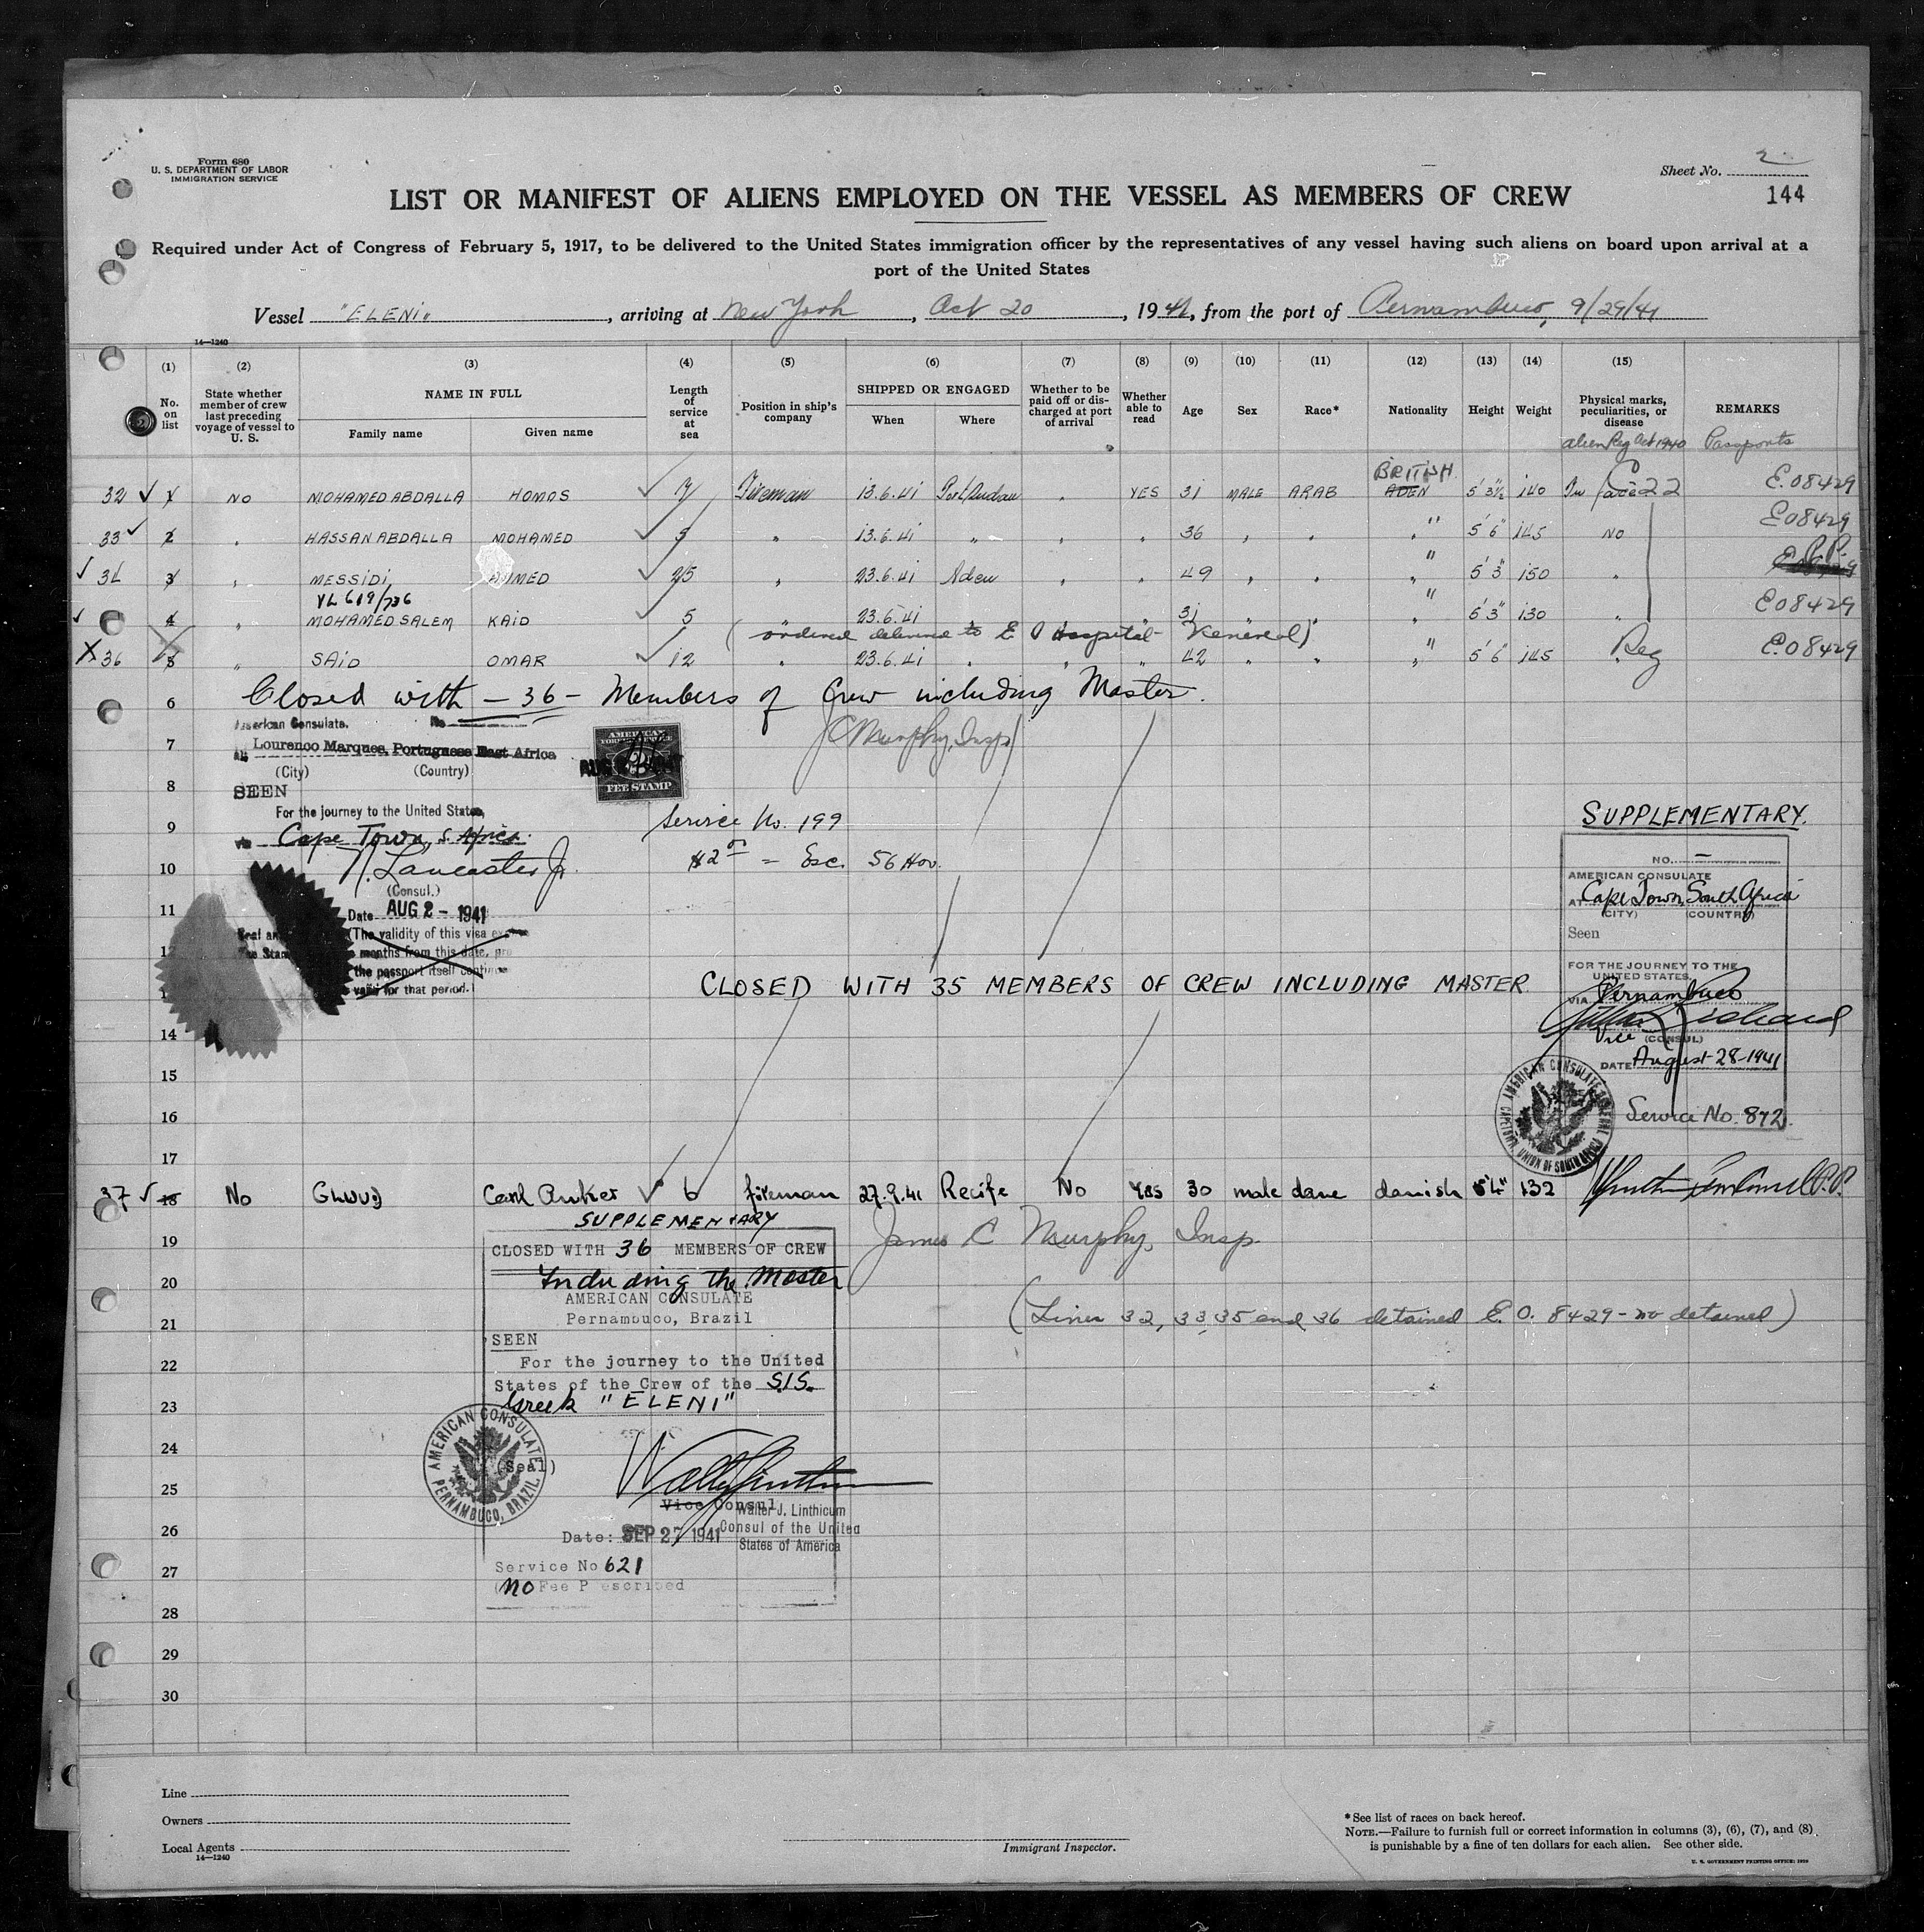 Form 680
U. S. DEPARTMENT OF LABOR
IMMIGRATION SERVICE
Sheet No. 2
144
LIST OR MANIFEST OF ALIENS EMPLOYED ON THE VESSEL AS MEMBERS OF CREW
Required under Act of Congress of February 5, 1917, to be delivered to the United States immigration officer by the representatives of any vessel having such aliens on board upon arrival at a
port of the United States
Vessel "ELENI", arriving at New York, Oct 20, 1941, from the port of Pernambuco, 9/29/41
14—1240
(1) (2) (3) (4) (5) (6) (7) (8) (9) (10) (11) (12) (13) (14) (15)
No. on list
State whether member of crew last preceding voyage of vessel to U. S.
NAME IN FULL
Family name
Given name
Length of service at sea
Position in ship's company
SHIPPED OR ENGAGED
When
Where
Whether to be paid off or discharged at port of arrival
Whether able to read
Age
Sex
Race*
Nationality
Height
Weight
Physical marks, peculiarities, or disease
REMARKS
alien Reg Oct 1940 Passports
BRITISH
32 1 NO MOHAMED ABDALLA HOMAS 7 Fireman 13.6.41 Port Sudan " YES 31 MALE ARAB ADEN 5' 3½ 140 E.08429
33 2 " HASSAN ABDALLA MOHAMED 5 " 13.6.41 " " " 36 " " " 5' 6" 145 NO E08429
34 3 " MESSIDI AHMED 25 " 23.6.41 Aden " " 49 " " " 5' 3" 150 "
VL 619/736
4 " MOHAMED SALEM KAID 5 " 23.6.41 " " " 31 " " " 5' 3" 130 " E08429
(ordered delivered to E I Hospital - Venereal)
36 5 " SAID OMAR 12 " 23.6.41 " " " 42 " " " 5' 6" 145 Reg E.08429
6 Closed with - 36 - Members of Crew including Master.
American Consulate. No
7 JC Murphy, Insp
At Lourenco Marques, Portuguese East Africa
(City) (Country)
AMERICAN
FEE STAMP
8
SEEN
For the journey to the United States,
9
via Cape Town, S. Africa.
Service No. 199
10
N. Lancaster Jr.
$2 00 = Esc. 56 Hov.
(Consul.)
11
Date AUG 2 - 1941
12
(The validity of this visa
months from this date,
the passport itself
valid for that period.)
13
CLOSED WITH 35 MEMBERS OF CREW INCLUDING MASTER
SUPPLEMENTARY.
NO. —
AMERICAN CONSULATE
AT Cape Town, South Africa
(CITY) (COUNTRY)
Seen
FOR THE JOURNEY TO THE
UNITED STATES.
VIA Pernambuco
Vice (CONSUL)
DATE August-28-1941
AMERICAN CONSULATE GENERAL
CAPETOWN, UNION OF SOUTH AFRICA
Service No. 872
14
15
16
17
37 18 No Carl Anker 6 fireman 27.9.41 Recife No Yes 30 male dane danish 5'4" 132
SUPPLEMENTARY
19 CLOSED WITH 36 MEMBERS OF CREW
James C Murphy, Insp.
20 Including the Master
AMERICAN CONSULATE
21 Pernambuco, Brazil
(Lines 32, 33, 35 and 36 detained E. O. 8429 - no detained)
SEEN
22 For the journey to the United
States of the Crew of the S.S.
23 Greek "ELENI"
24
AMERICAN CONSULATE
PERNAMBUCO, BRAZIL
(Seal)
25
Vice Consul
Walter J. Linthicum
Consul of the United
States of America
26 Date: SEP 27 1941
27 Service No 621
(No Fee Prescribed
28
29
30
Line
Owners
Local Agents
14—1240
Immigrant Inspector.
* See list of races on back hereof.
NOTE.—Failure to furnish full or correct information in columns (3), (6), (7), and (8)
is punishable by a fine of ten dollars for each alien. See other side.
U. S. GOVERNMENT PRINTING OFFICE